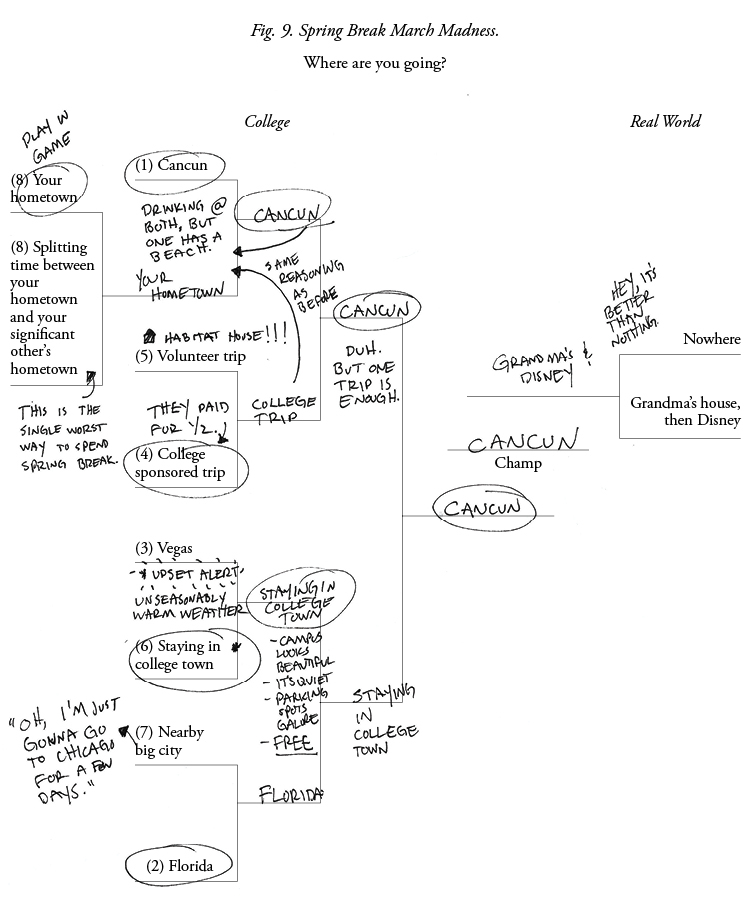 Fig. 9. Spring Break March Madness.
Where are you going?
College
Real World
PLAY IN
GAME
(8) Your
hometown
(8) Splitting
time between
your
hometown
and your
significant
other's
hometown
THIS IS THE
SINGLE WORST
WAY TO SPEND
SPRING BREAK.
(1) Cancun
DRINKING @
BOTH, BUT
ONE HAS A
BEACH.
YOUR
HOMETOWN
HABITAT HOUSE!!!
(5) Volunteer trip
THEY PAID
FOR 1/2.
(4) College
sponsored trip
CANCUN
SAME
REASONING
AS
BEFORE
COLLEGE
TRIP
CANCUN
DUH.
BUT ONE
TRIP IS
ENOUGH.
(3) Vegas
UPSET ALERT
UNSEASONABLY
WARM WEATHER
(6) Staying in
college town
"OH, I'M JUST
GONNA GO
TO CHICAGO
FOR A FEW
DAYS."
(7) Nearby
big city
(2) Florida
STAYING IN
COLLEGE
TOWN
- CAMPUS
LOOKS
BEAUTIFUL
- IT'S QUIET
- PARKING
SPOTS
GALORE
- FREE
FLORIDA
STAYING
IN
COLLEGE
TOWN
CANCUN
CANCUN
Champ
GRANDMA'S &
DISNEY
HEY, IT'S
BETTER
THAN
NOTHING.
Nowhere
Grandma's house,
then Disney